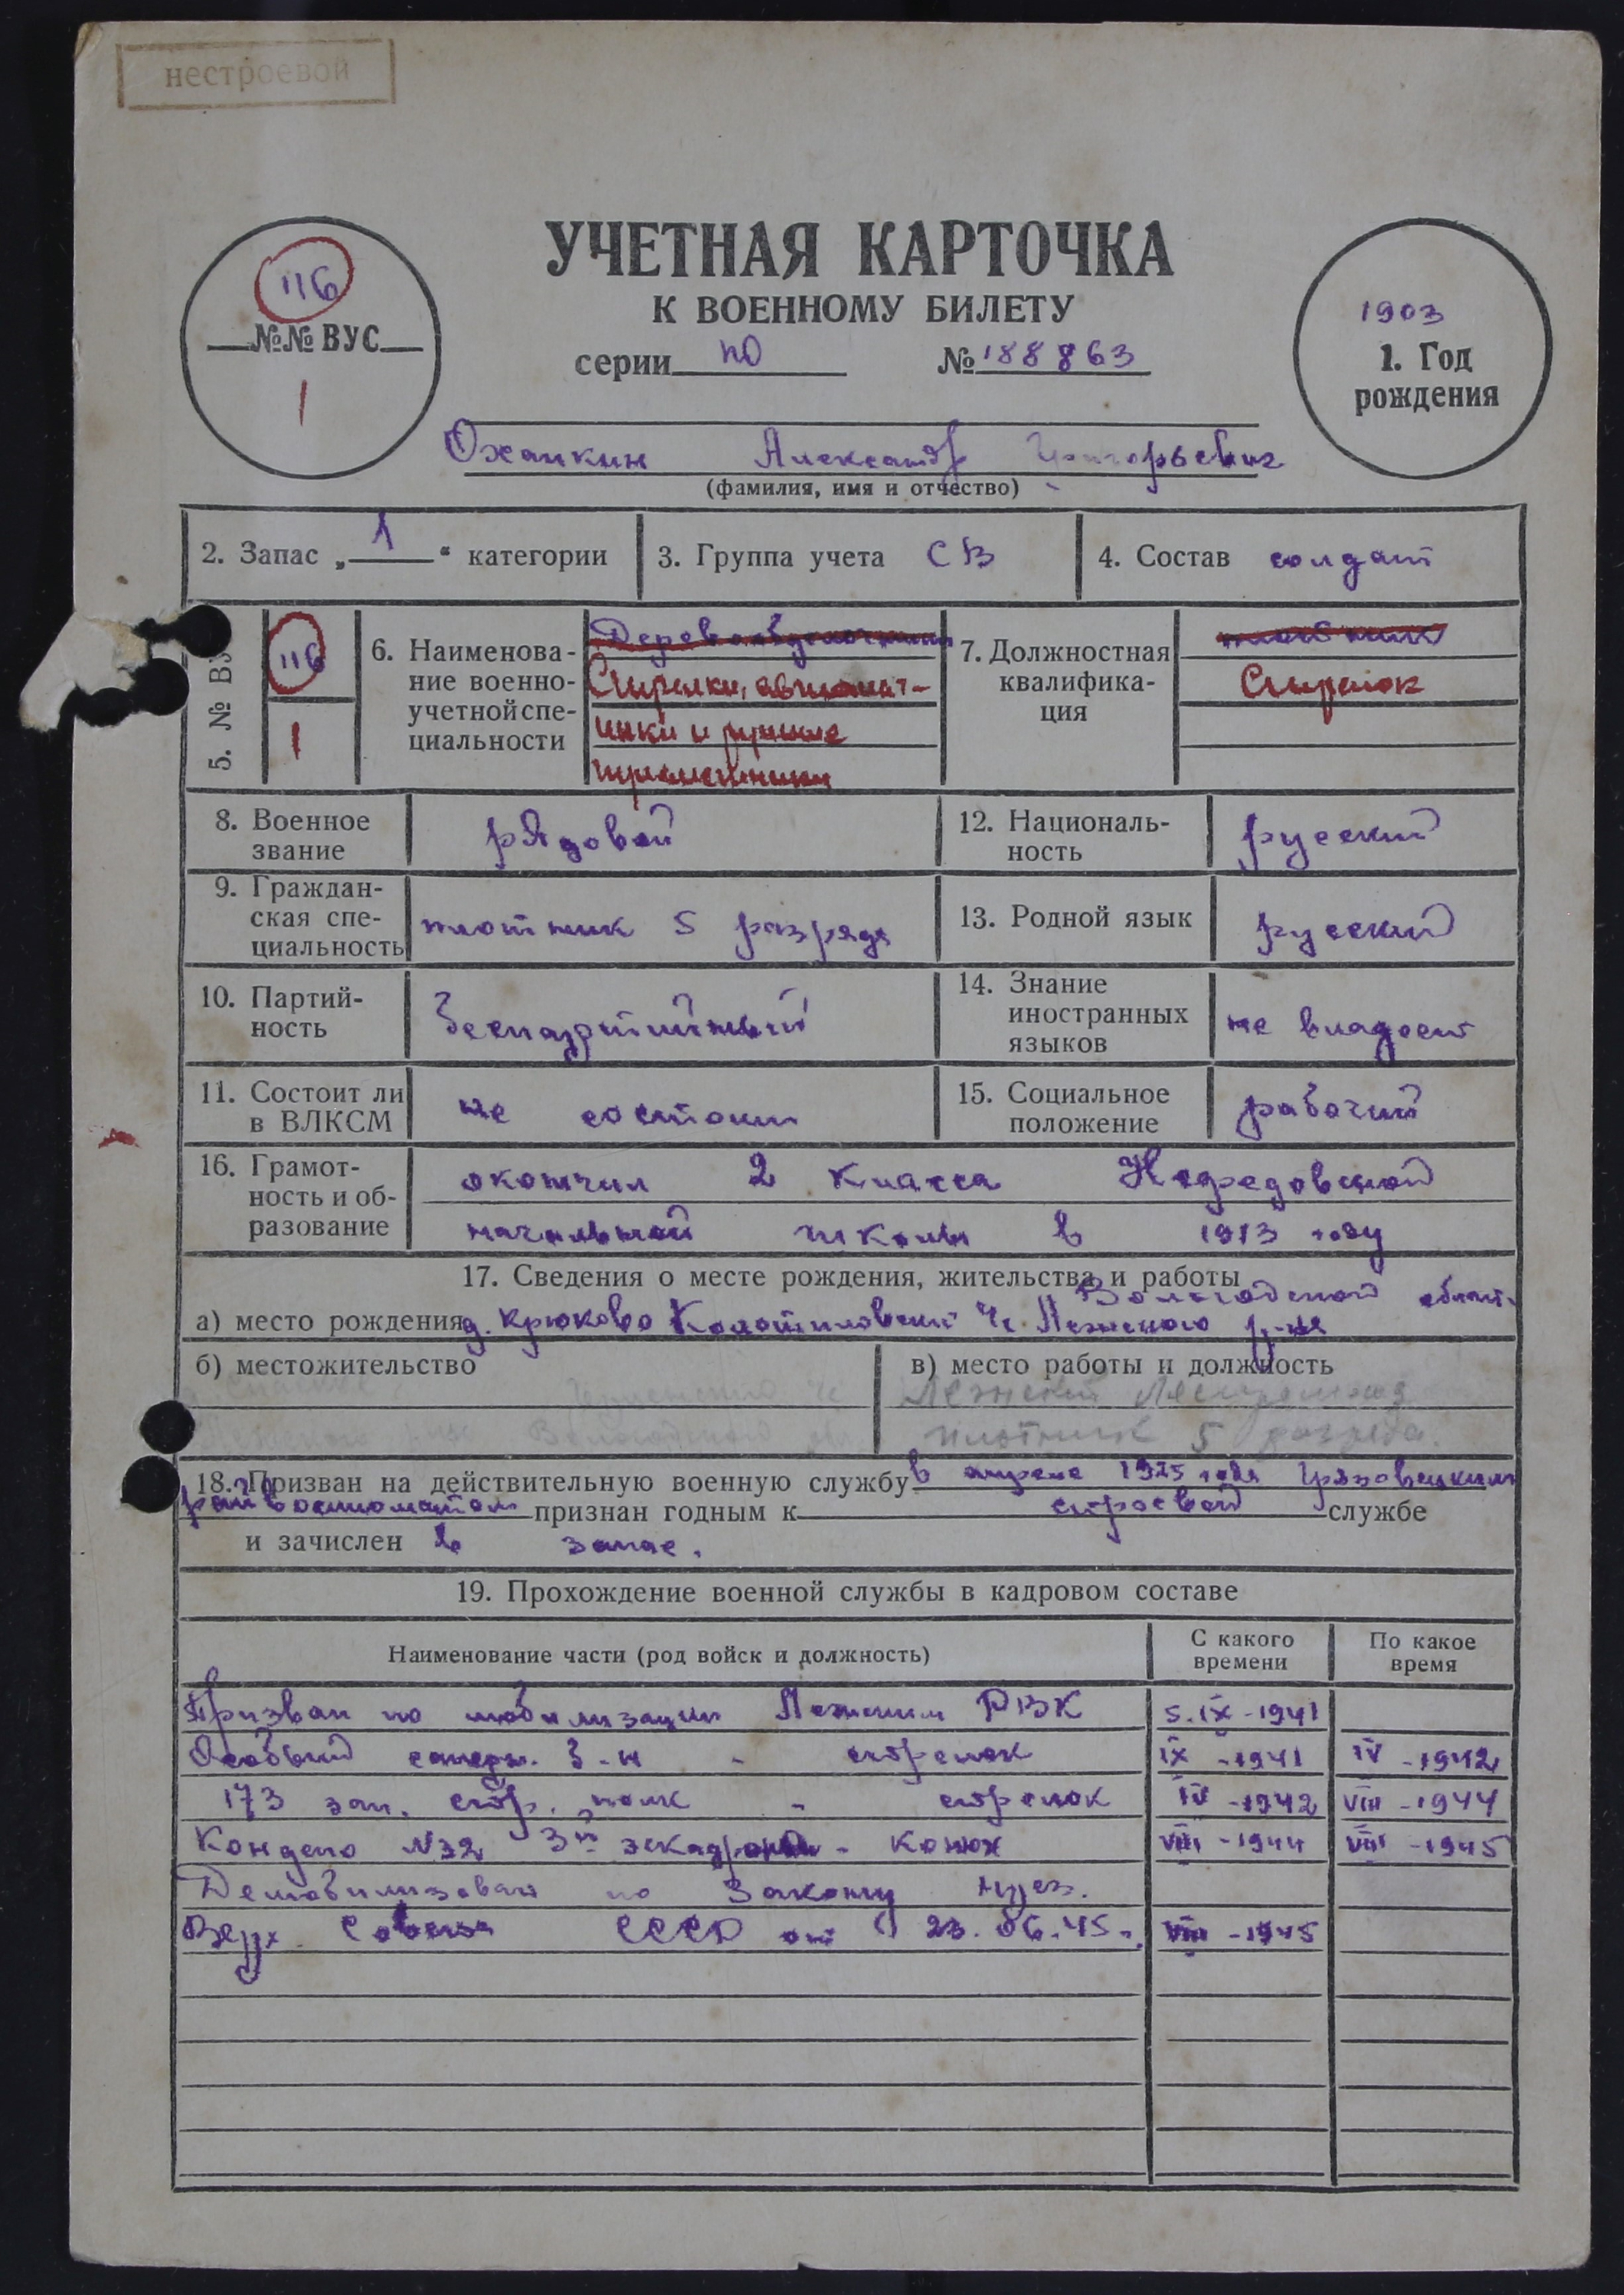 нестроевой
116
№№ ВУС
1
УЧЕТНАЯ КАРТОЧКА
К ВОЕННОМУ БИЛЕТУ
серии ПО № 188863
1903
1. Год
рождения
Охапкин Александр Григорьевич
(фамилия, имя и отчество)
2. Запас „ 1 “ категории
3. Группа учета СВ
4. Состав солдат
5. № ВУ
116
1
6. Наименова-
ние военно-
учетной спе-
циальности
Стрелки, автомат-
чики и ручные
7. Должностная
квалифика-
ция
плотник
Стрелок
8. Военное
звание
рядовой
12. Националь-
ность
русский
9. Граждан-
ская спе-
циальность
плотник 5 разряда
13. Родной язык
русский
10. Партий-
ность
беспартийный
14. Знание
иностранных
языков
не владеет
11. Состоит ли
в ВЛКСМ
не состоит
15. Социальное
положение
рабочий
16. Грамот-
ность и об-
разование
окончил 2 класса
начальной школы в 1913 году
17. Сведения о месте рождения, жительства и работы
Вологодской област.
а) место рождения д. Крюково с/с Лежского р-на
б) местожительство
в) место работы и должность
Лежский
Лежского р-на Вологодской
плотник 5 разряда.
18. Призван на действительную военную службу в апреле 1925 года Грязовецким
райвоенкоматом признан годным к строевой службе
и зачислен в запас.
19. Прохождение военной службы в кадровом составе
Наименование части (род войск и должность)
С какого
времени
По какое
время
Призван по мобилизации Лежским РВК 5.IX-1941
Особый саперн. б-н - стрелок IX -1941 IV -1942
173 зап. стр. полк - стрелок IV -1942 VIII -1944
Кондепо №32 3й эскадрон - конюх VIII -1944 VIII -1945
Демобилизован по Закону През.
Верх. Совета СССР от 23.06.45г. VIII -1945